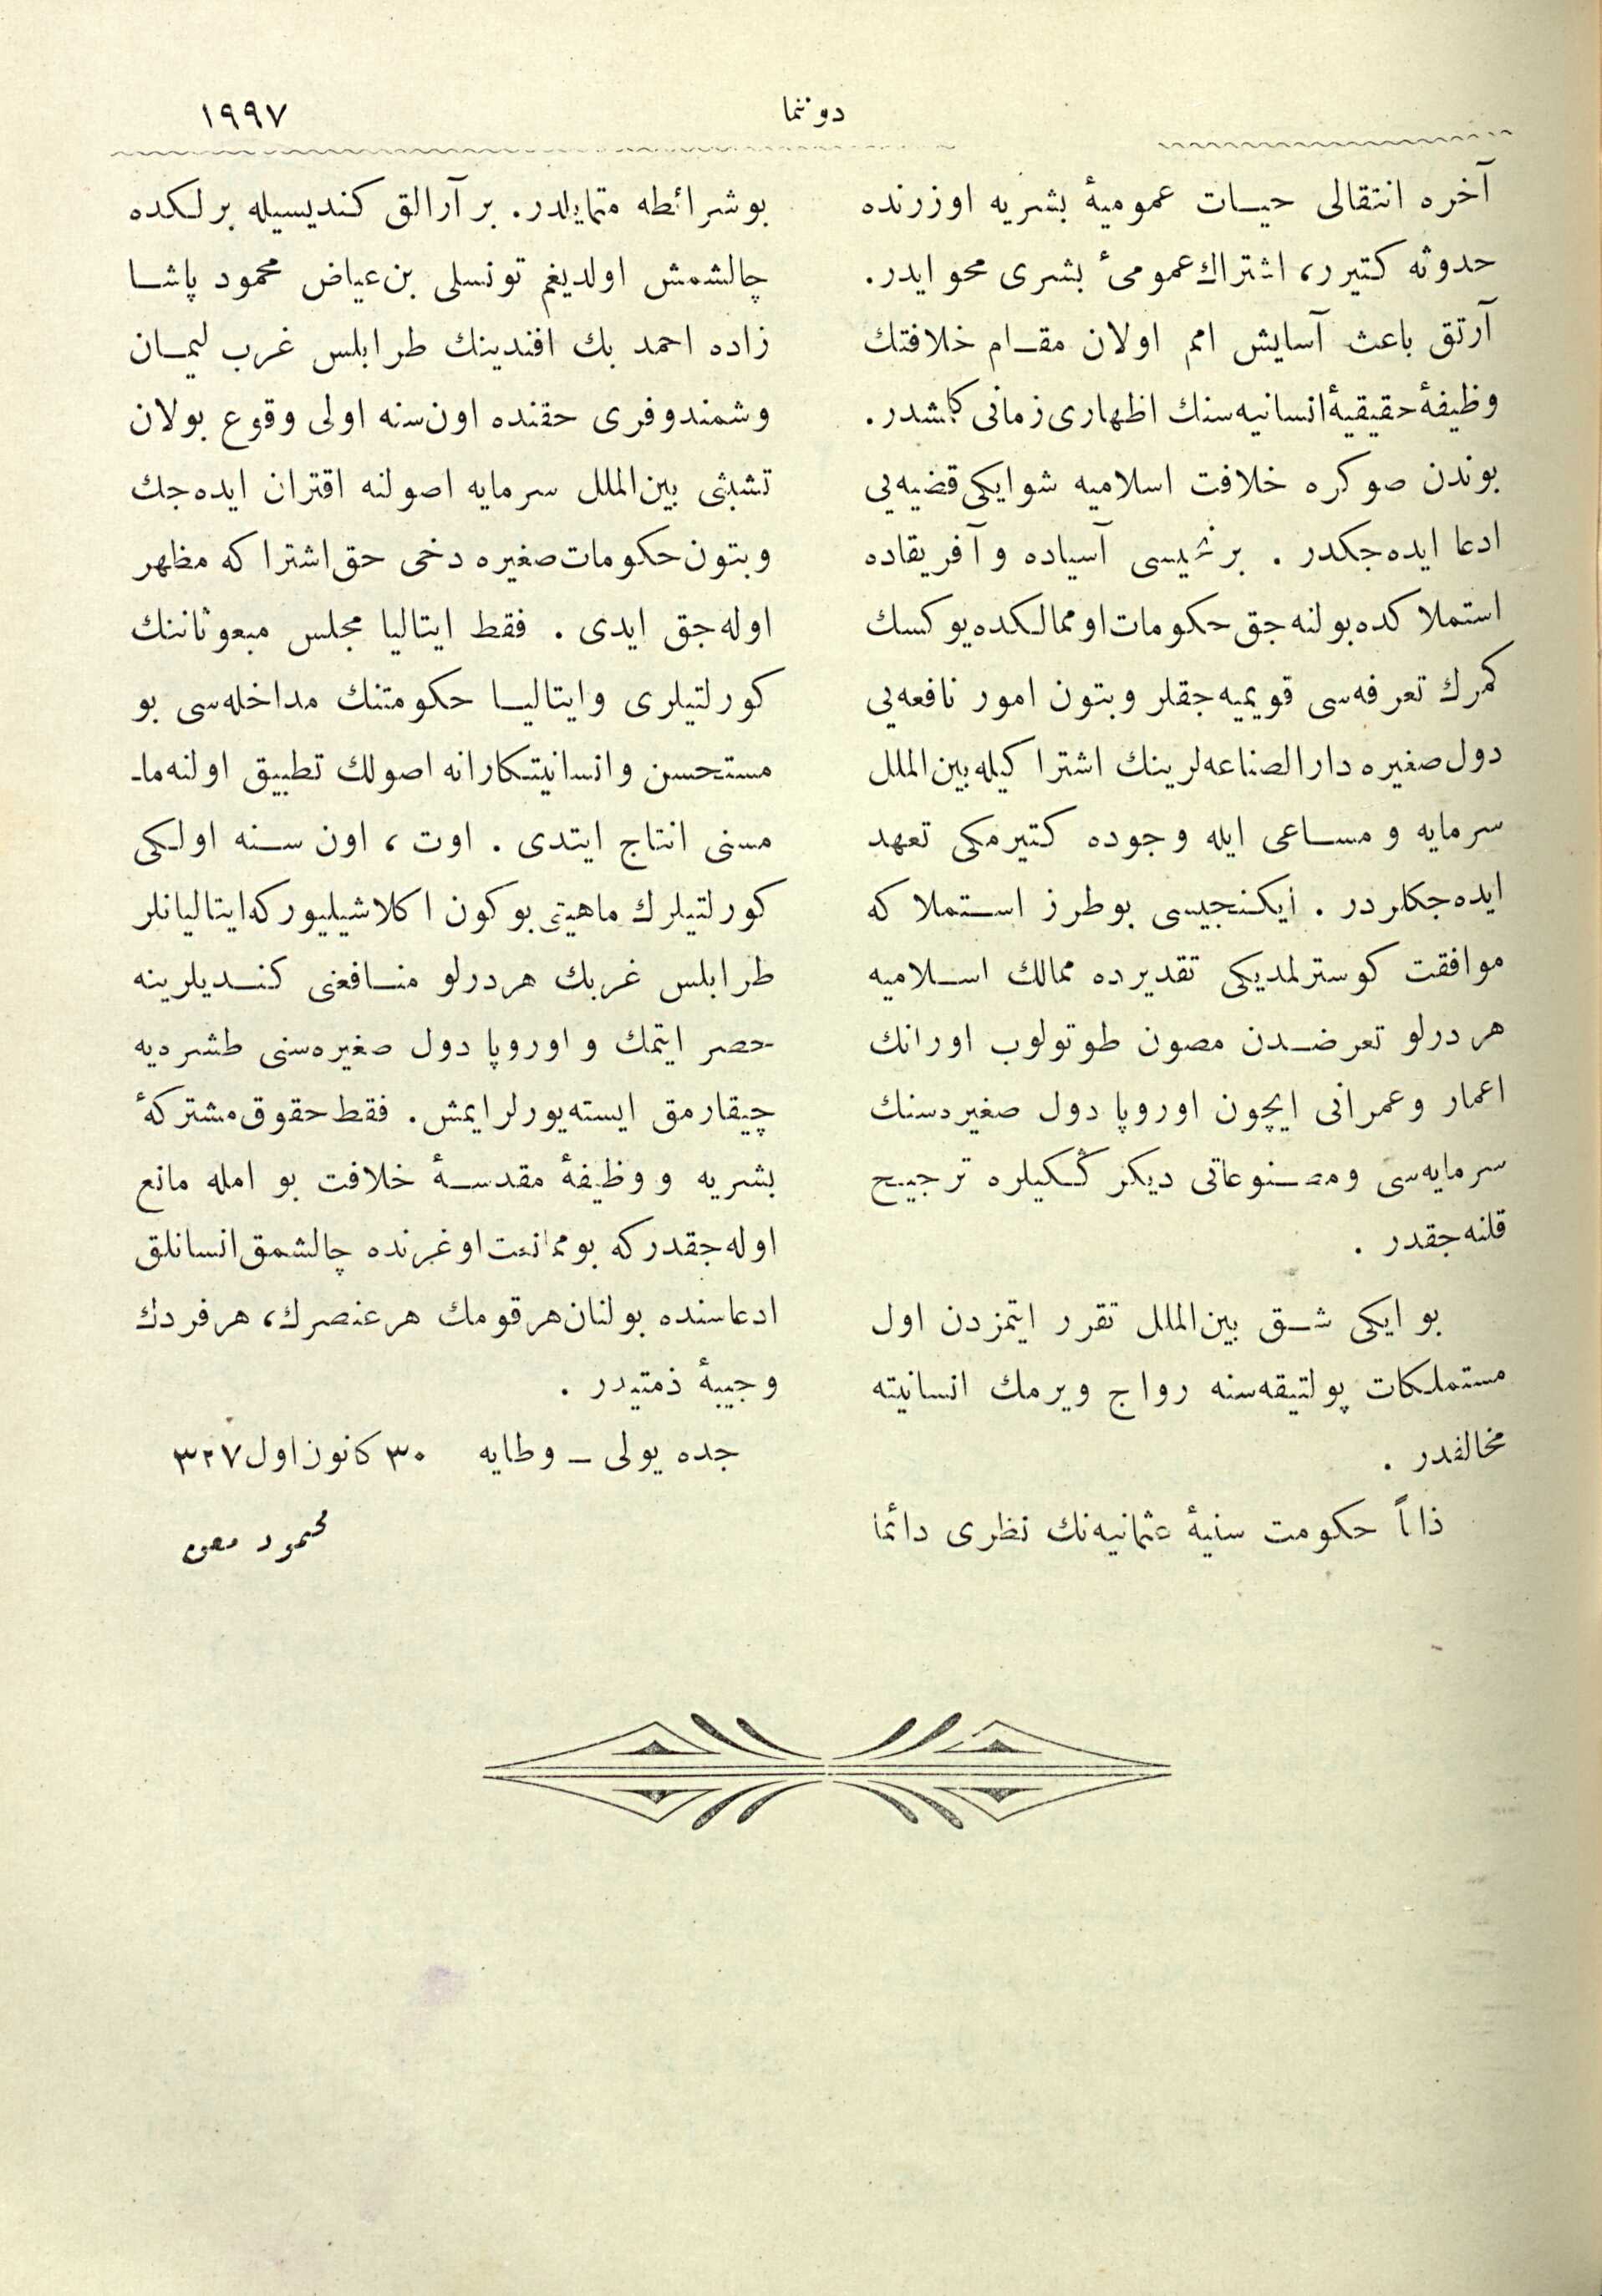 دوننما
١٩٩٧
آخره انتقالى حيات عموميۀ بشريه اوزرنده
حدوثه كتيرر، اشتراك عمومئ بشرى محو ايدر.
آرتق باعث آسايش امم اولان مقام خلافتك
وظيفۀ حقيقيۀ انسانيه‌سنك اظهارى زمانى كلمشدر.
بوندن صوكره خلافت اسلاميه شو ايكى قضيه‌يى
ادعا ايده‌جكدر . برنجيسى آسياده و آفريقاده
استملاكده بولنه‌جق حكومات او ممالكده يوكسك
كمرك تعرفه‌سى قويميه‌جقلر و بتون امور نافعه‌يى
دول صغيره دارالصناعه‌لرينك اشتراكيله بين‌الملل
سرمايه و مساعى ايله وجوده كتيرمكى تعهد
ايده‌جكلردر . ايكنجيسى بو طرز استملاكه
موافقت كوسترلمديكى تقديرده ممالك اسلاميه
هر درلو تعرضدن مصون طوتولوب اورانك
اعمار و عمرانى ايچون اوروپا دول صغيره‌سنك
سرمايه‌سى و مصنوعاتى ديكرڭكيلره ترجيح
قلنه‌جقدر .
بو ايكى شق بين‌الملل تقرر ايتمزدن اول
مستملكات پولتيقه‌سنه رواج ويرمك انسانيته
مخالفدر .
ذاتاً حكومت سنيۀ عثمانيه‌نك نظرى دائما
بو شرائطه متمايلدر. بر آرالق كنديسيله برلكده
چالشمش اولديغم تونسلى بن عياض محمود پاشا
زاده احمد بك افندينك طرابلس غرب ليمان
و شمندوفرى حقنده اون سنه اولى وقوع بولان
تشبثى بين‌الملل سرمايه اصولنه اقتران ايده‌جك
و بتون حكومات صغيره دخى حق اشتراكه مظهر
اوله‌جق ايدى . فقط ايتاليا مجلس مبعوثاننك
كورلتيلرى و ايتاليا حكومتنك مداخله‌سى بو
مستحسن و انسانيتكارانه اصولك تطبيق اولنه‌ما-
مسنى انتاج ايتدى . اوت ، اون سنه اولكى
كورلتيلرك ماهيتى بو كون اكلاشيليوركه ايتاليانلر
طرابلس غربك هردرلو منافعنى كنديلرينه
حصر ايتمك و اوروپا دول صغيره‌سنى طشره‌يه
چيقارمق ايسته‌يورلر ايمش. فقط حقوق مشتركۀ
بشريه و وظيفۀ مقدسۀ خلافت بو امله مانع
اوله‌جقدركه بو ممانعت اوغرنده چالشمق انسانلق
ادعاسنده بولنان هر قومك هر عنصرك، هر فردك
وجيبۀ ذمتيدر .
جده يولى ـ وطايه ٣٠ كانون اول ٣٢٧
محمود